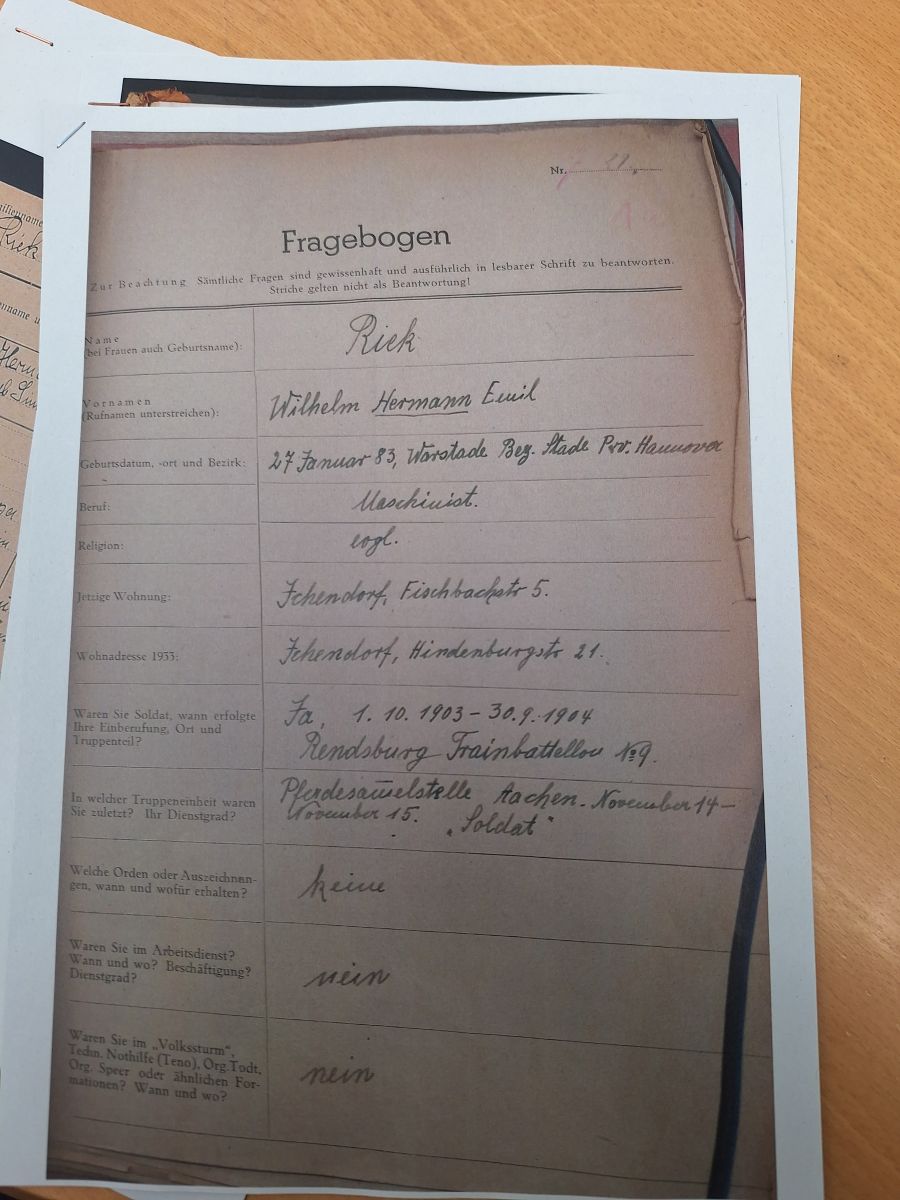 Nr.
Fragebogen
Zur Beachtung Sämtliche Fragen sind gewissenhaft und ausführlich in lesbarer Schrift zu beantworten.
Striche gelten nicht als Beantwortung!
Name
(bei Frauen auch Geburtsname):
Riek
Vornamen
(Rufnamen unterstreichen):
Wilhelm Hermann Emil
Geburtsdatum, -ort und Bezirk:
27 Januar 83, Warstade Bez. Stade Prv. Hannover
Beruf:
Maschinist.
Religion:
evgl.
Jetzige Wohnung:
Ichendorf, Fischbachstr 5.
Wohnadresse 1933:
Ichendorf, Hindenburgstr 21.
Waren Sie Soldat, wann erfolgte
Ihre Einberufung, Ort und
Truppenteil?
Ja, 1. 10. 1903 - 30.9.1904
Rendsburg Trainbattellon № 9.
In welcher Truppeneinheit waren
Sie zuletzt? Ihr Dienstgrad?
Pferdesam̄elstelle Aachen. November 14 –
November 15. „Soldat"
Welche Orden oder Auszeichnun-
gen, wann und wofür erhalten?
keine
Waren Sie im Arbeitsdienst?
Wann und wo? Beschäftigung?
Dienstgrad?
nein
Waren Sie im „Volkssturm",
Techn. Nothilfe (Teno), Org. Todt,
Org. Speer oder ähnlichen For-
mationen? Wann und wo?
nein
Riek